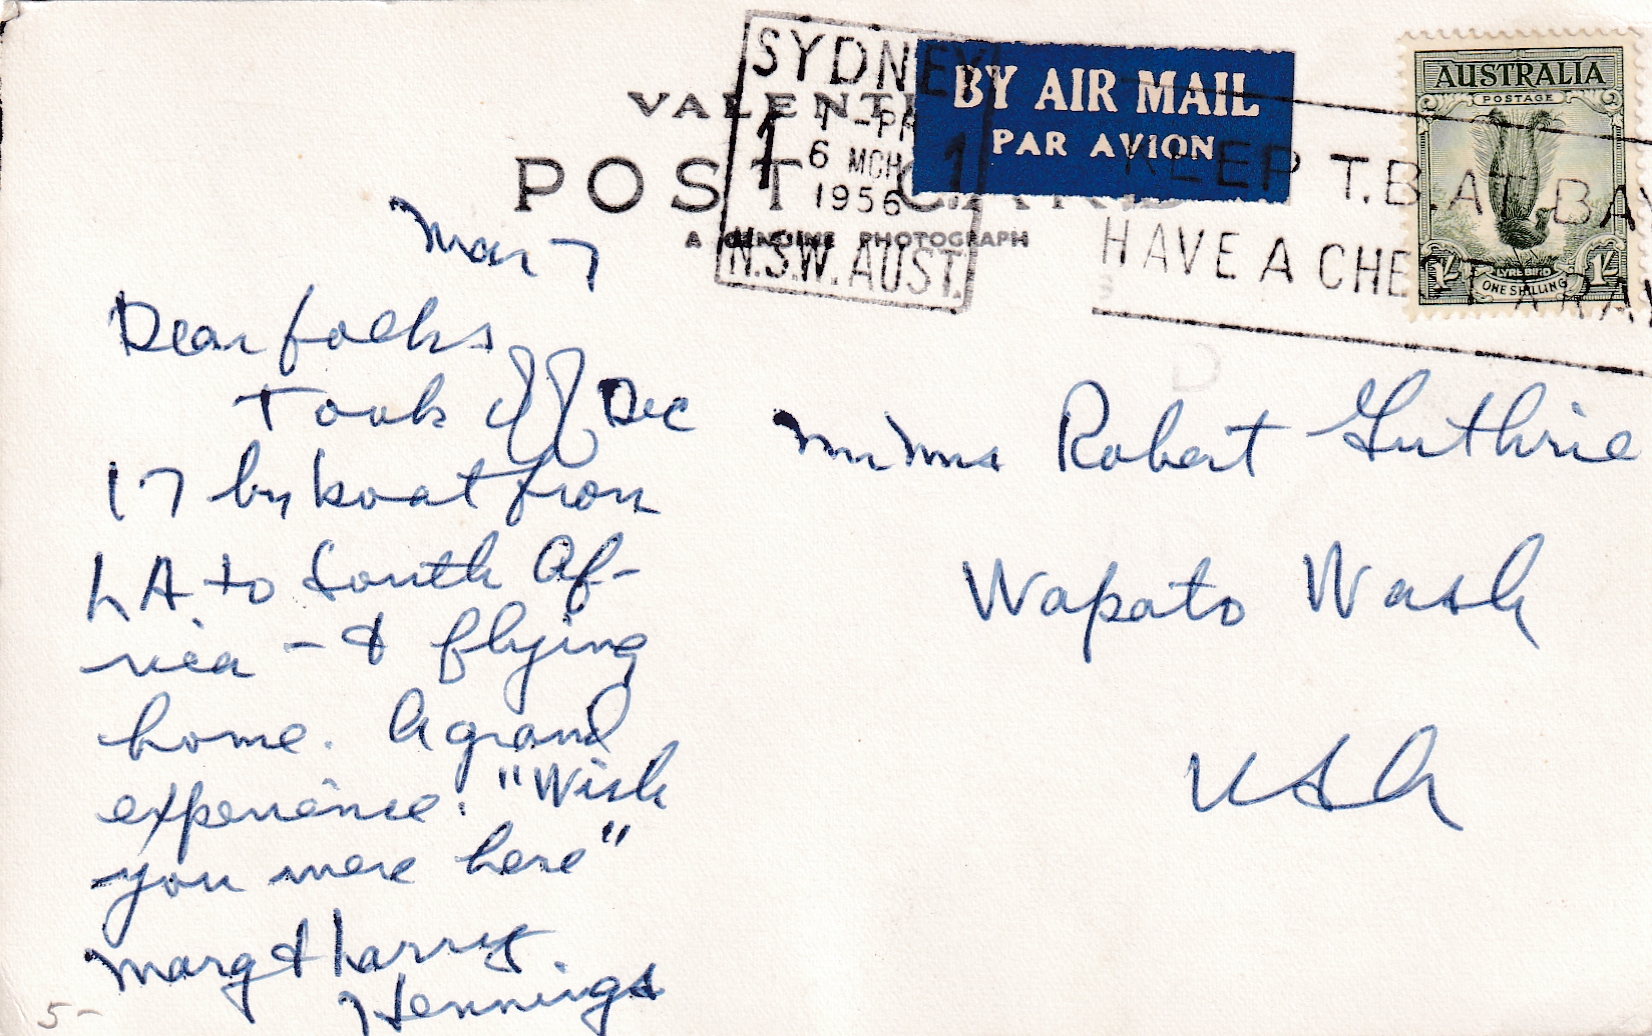 SYDNEY
1 1-PM 1
6 MCH
1956
N.S.W. AUST.
KEEP T.B. AT BAY
HAVE A CHEST X-RAY
BY AIR MAIL
PAR AVION
AUSTRALIA
POSTAGE
LYREBIRD
1/- 1/-
ONE SHILLING
VALENTI
POST CARD
A GENUINE PHOTOGRAPH
Mar 7
Dear folks
Took off Dec
17 by boat from
LA to South Af-
rica - & flying
home. A grand
experience! "Wish
you were here"
Marg & Harry
Hennings
Robert Guthrie
Wapato Wash
USA
5-